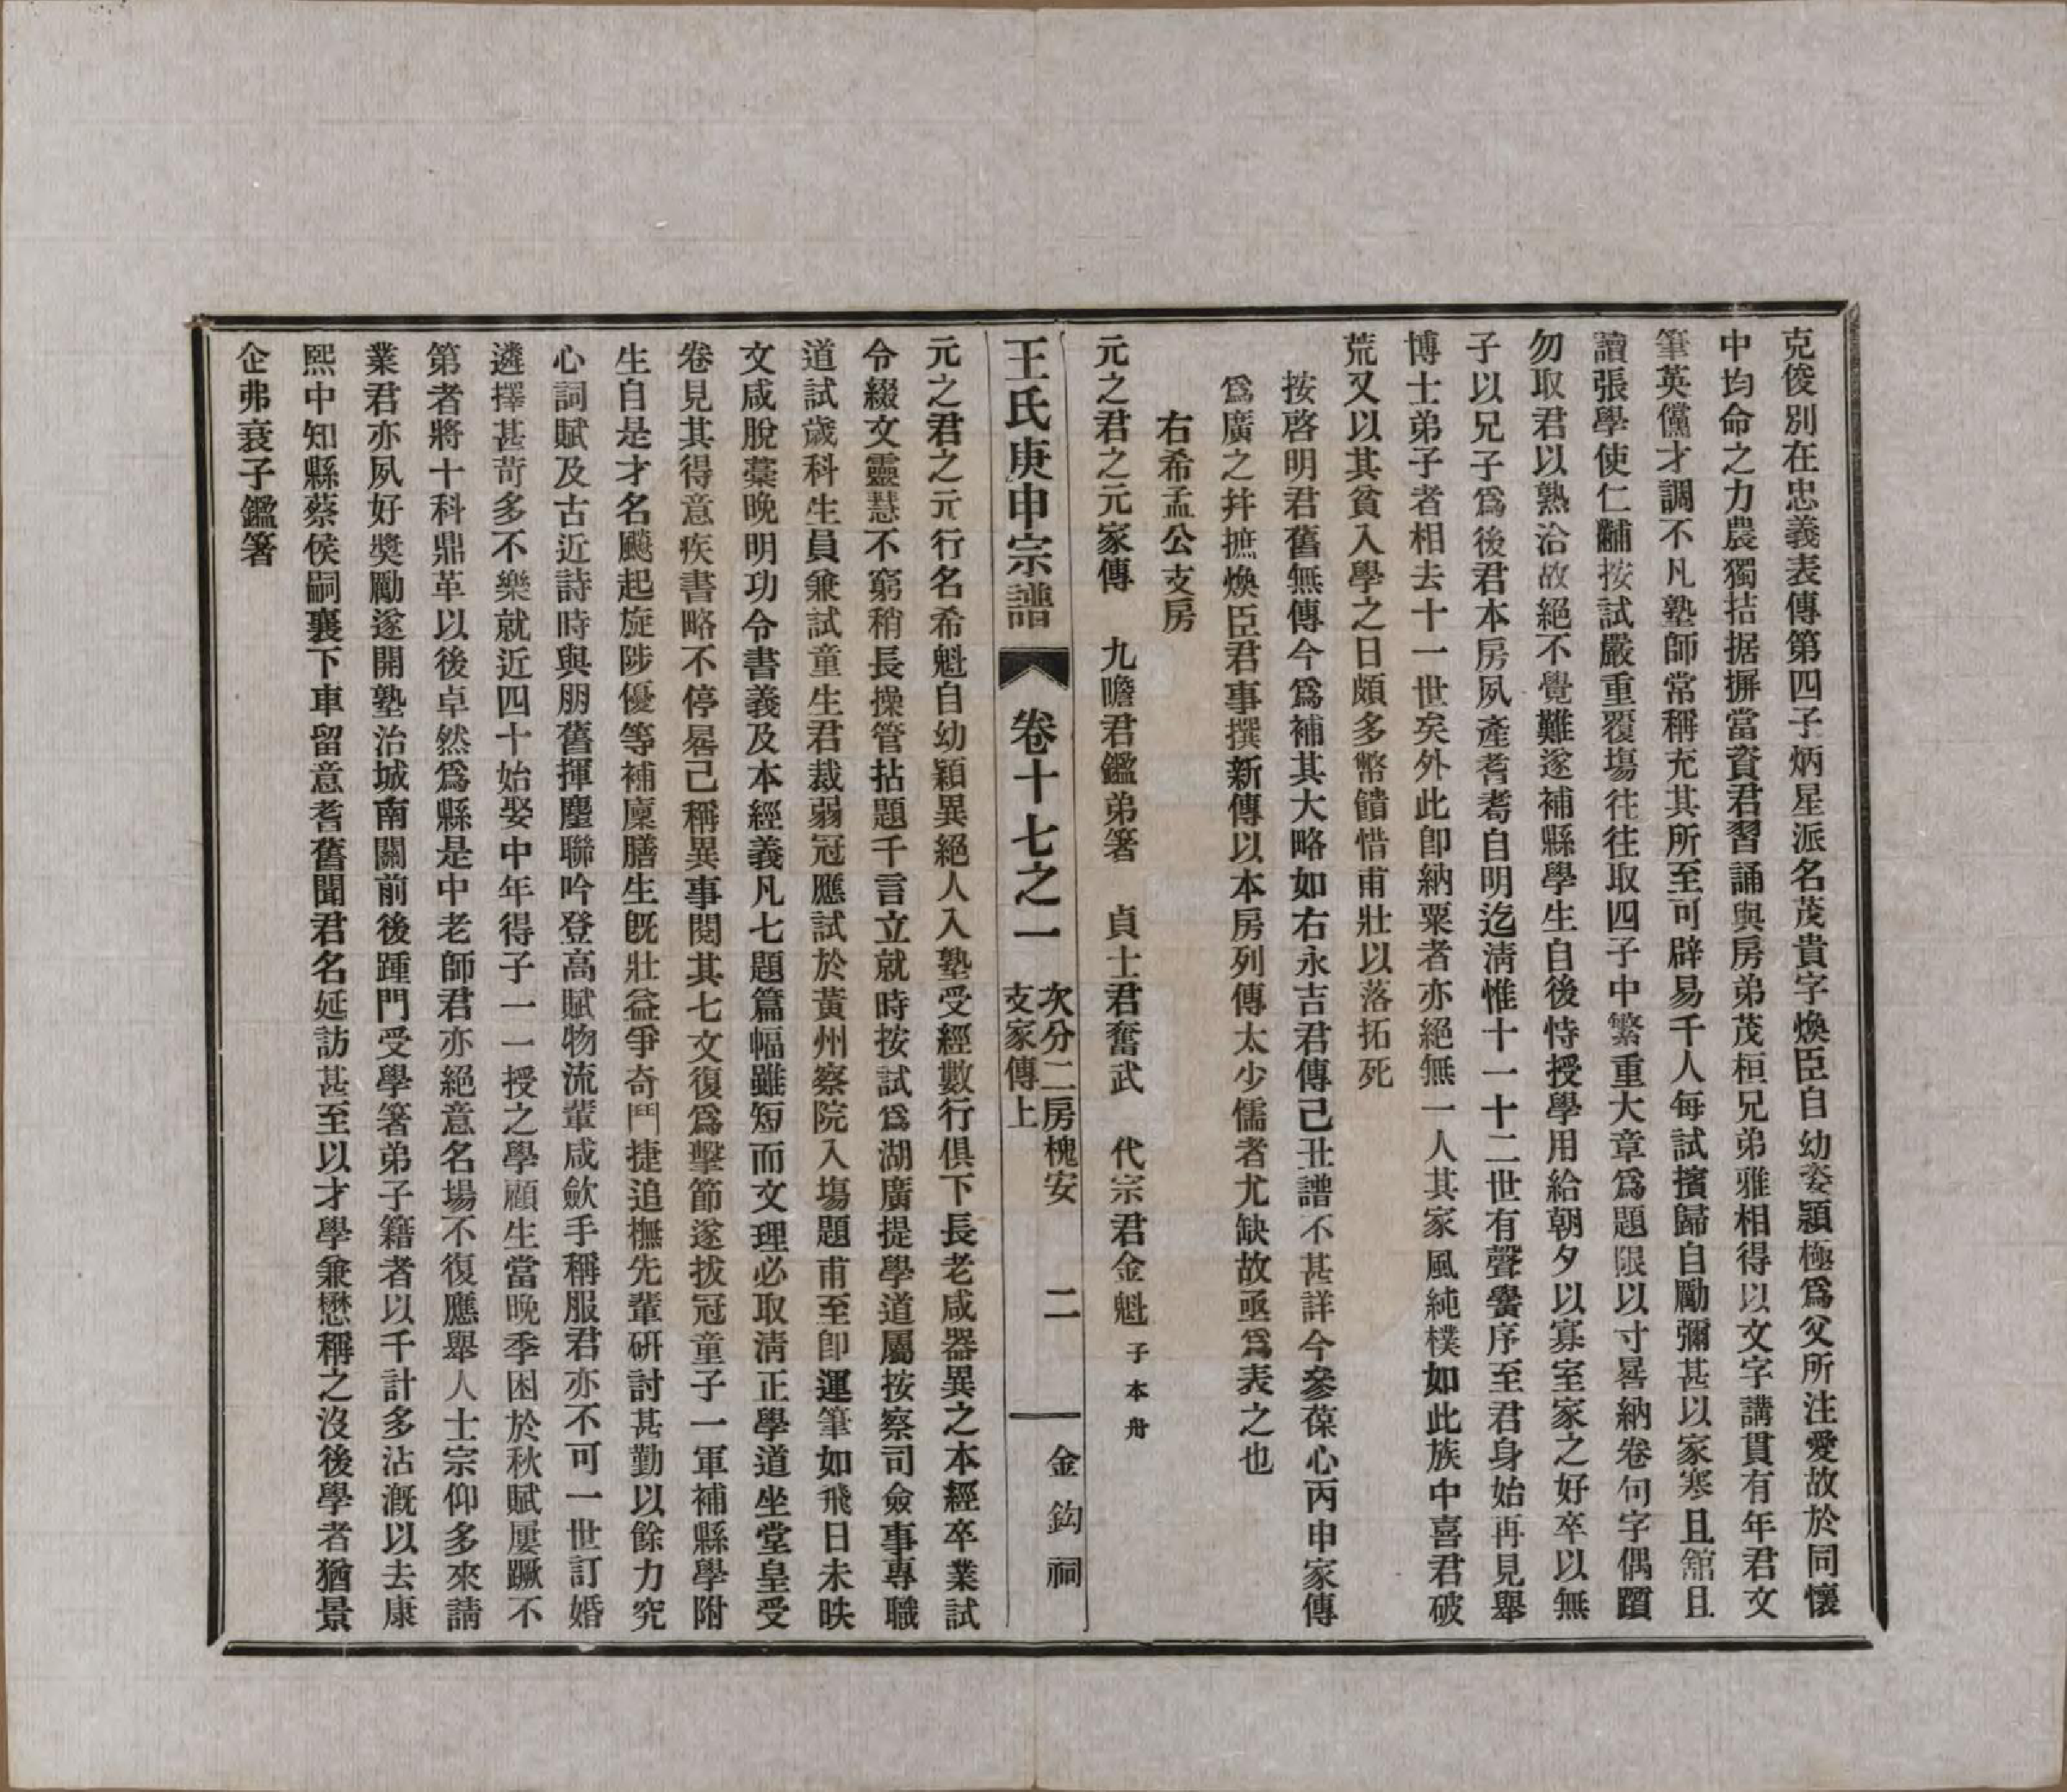 克俊別在忠義表傳第四子炳星派名茂貴字煥臣自幼姿穎極爲父所注愛故於同懷
中均命之力農獨拮据摒當資君習誦與房弟茂桓兄弟雅相得以文字講貫有年君文
筆英儻才調不凡塾師常稱充其所至可辟易千人每試擯歸自勵彌甚以家寒且舘且
讀張學使仁黼按試嚴重覆塲往往取四子中繁重大章爲題限以寸晷納卷句字偶躓
勿取君以熟洽故絕不覺難遂補縣學生自後恃授學用給朝夕以寡室家之好卒以無
子以兄子爲後君本房夙產耆耇自明迄淸惟十一十二世有聲黌序至君身始再見舉
博士弟子者相去十一世矣外此卽納粟者亦絕無一人其家風純樸如此族中喜君破
荒又以其貧入學之日頗多幣饋惜甫壯以落拓死
按啓明君舊無傳今爲補其大略如右永吉君傳己丑譜不甚詳今參葆心丙申家傳
爲廣之幷摭煥臣君事撰新傳以本房列傳太少儒者尤缺故亟爲表之也
右希孟公支房
元之君之元家傳　九瞻君鑑弟箸　貞士君奮武　代宗君金魁子本舟
王氏庚申宗譜　卷十七之一　次分二房槐安支家傳上　二　金鈎祠
元之君之元行名希魁自幼穎異絕人入塾受經數行俱下長老咸器異之本經卒業試
令綴文靈慧不窮稍長操管拈題千言立就時按試爲湖廣提學道屬按察司僉事專職
道試歲科生員兼試童生君裁弱冠應試於黃州察院入塲題甫至卽運筆如飛日未昳
文咸脫藳晚明功令書義及本經義凡七題篇幅雖短而文理必取淸正學道坐堂皇受
卷見其得意疾書略不停晷已稱異事閱其七文復爲擊節遂拔冠童子一軍補縣學附
生自是才名飈起旋陟優等補廩膳生旣壯益爭奇鬥捷追橅先輩硏討甚勤以餘力究
心詞賦及古近詩時與朋舊揮麈聯吟登高賦物流輩咸歛手稱服君亦不可一世訂婚
遴擇甚苛多不樂就近四十始娶中年得子一一授之學顧生當晚季困於秋賦屢蹶不
第者將十科鼎革以後卓然爲縣是中老師君亦絕意名場不復應舉人士宗仰多來請
業君亦夙好奬勵遂開塾治城南關前後踵門受學箸弟子籍者以千計多沾漑以去康
熙中知縣蔡侯嗣襄下車留意耆舊聞君名延訪甚至以才學兼懋稱之沒後學者猶景
企弗衰子鑑箸